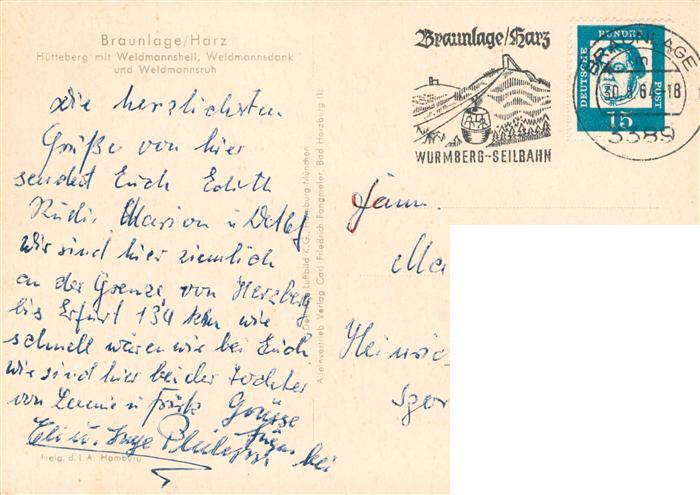 Braunlage/Harz
Hütteberg mit Weidmannsheil, Weidmannsdank
und Weidmannsruh
Die herzlichsten
Grüße von hier
sendet Euch Edith
Rudi, Marion u. Detlef
wir sind hier ziemlich
an der Grenze, von Herzberg
bis Erfurt 134 km wie
schnell wären wir bei Euch
wir sind hier bei der Tochter
von u. Grüsse
Elli u. Inge bei
Freig. d. L.A. Hamburg
Deutsche Luftbild K.G., Hamburg-München
Alleinvertrieb Verlag Carl Friedrich Fangmeier, Bad Harzburg (1)
Braunlage/Harz
WURMBERG-SEILBAHN
DEUTSCHE
BUNDES
POST
15
BRAUNLAGE
3389
Fam.
Ma
Heinric